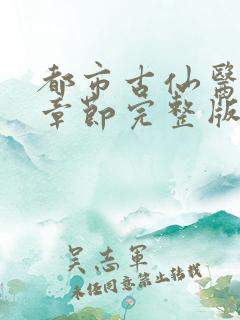 都市古仙醫
章節完整版
吴志軍
未经同意禁止转载